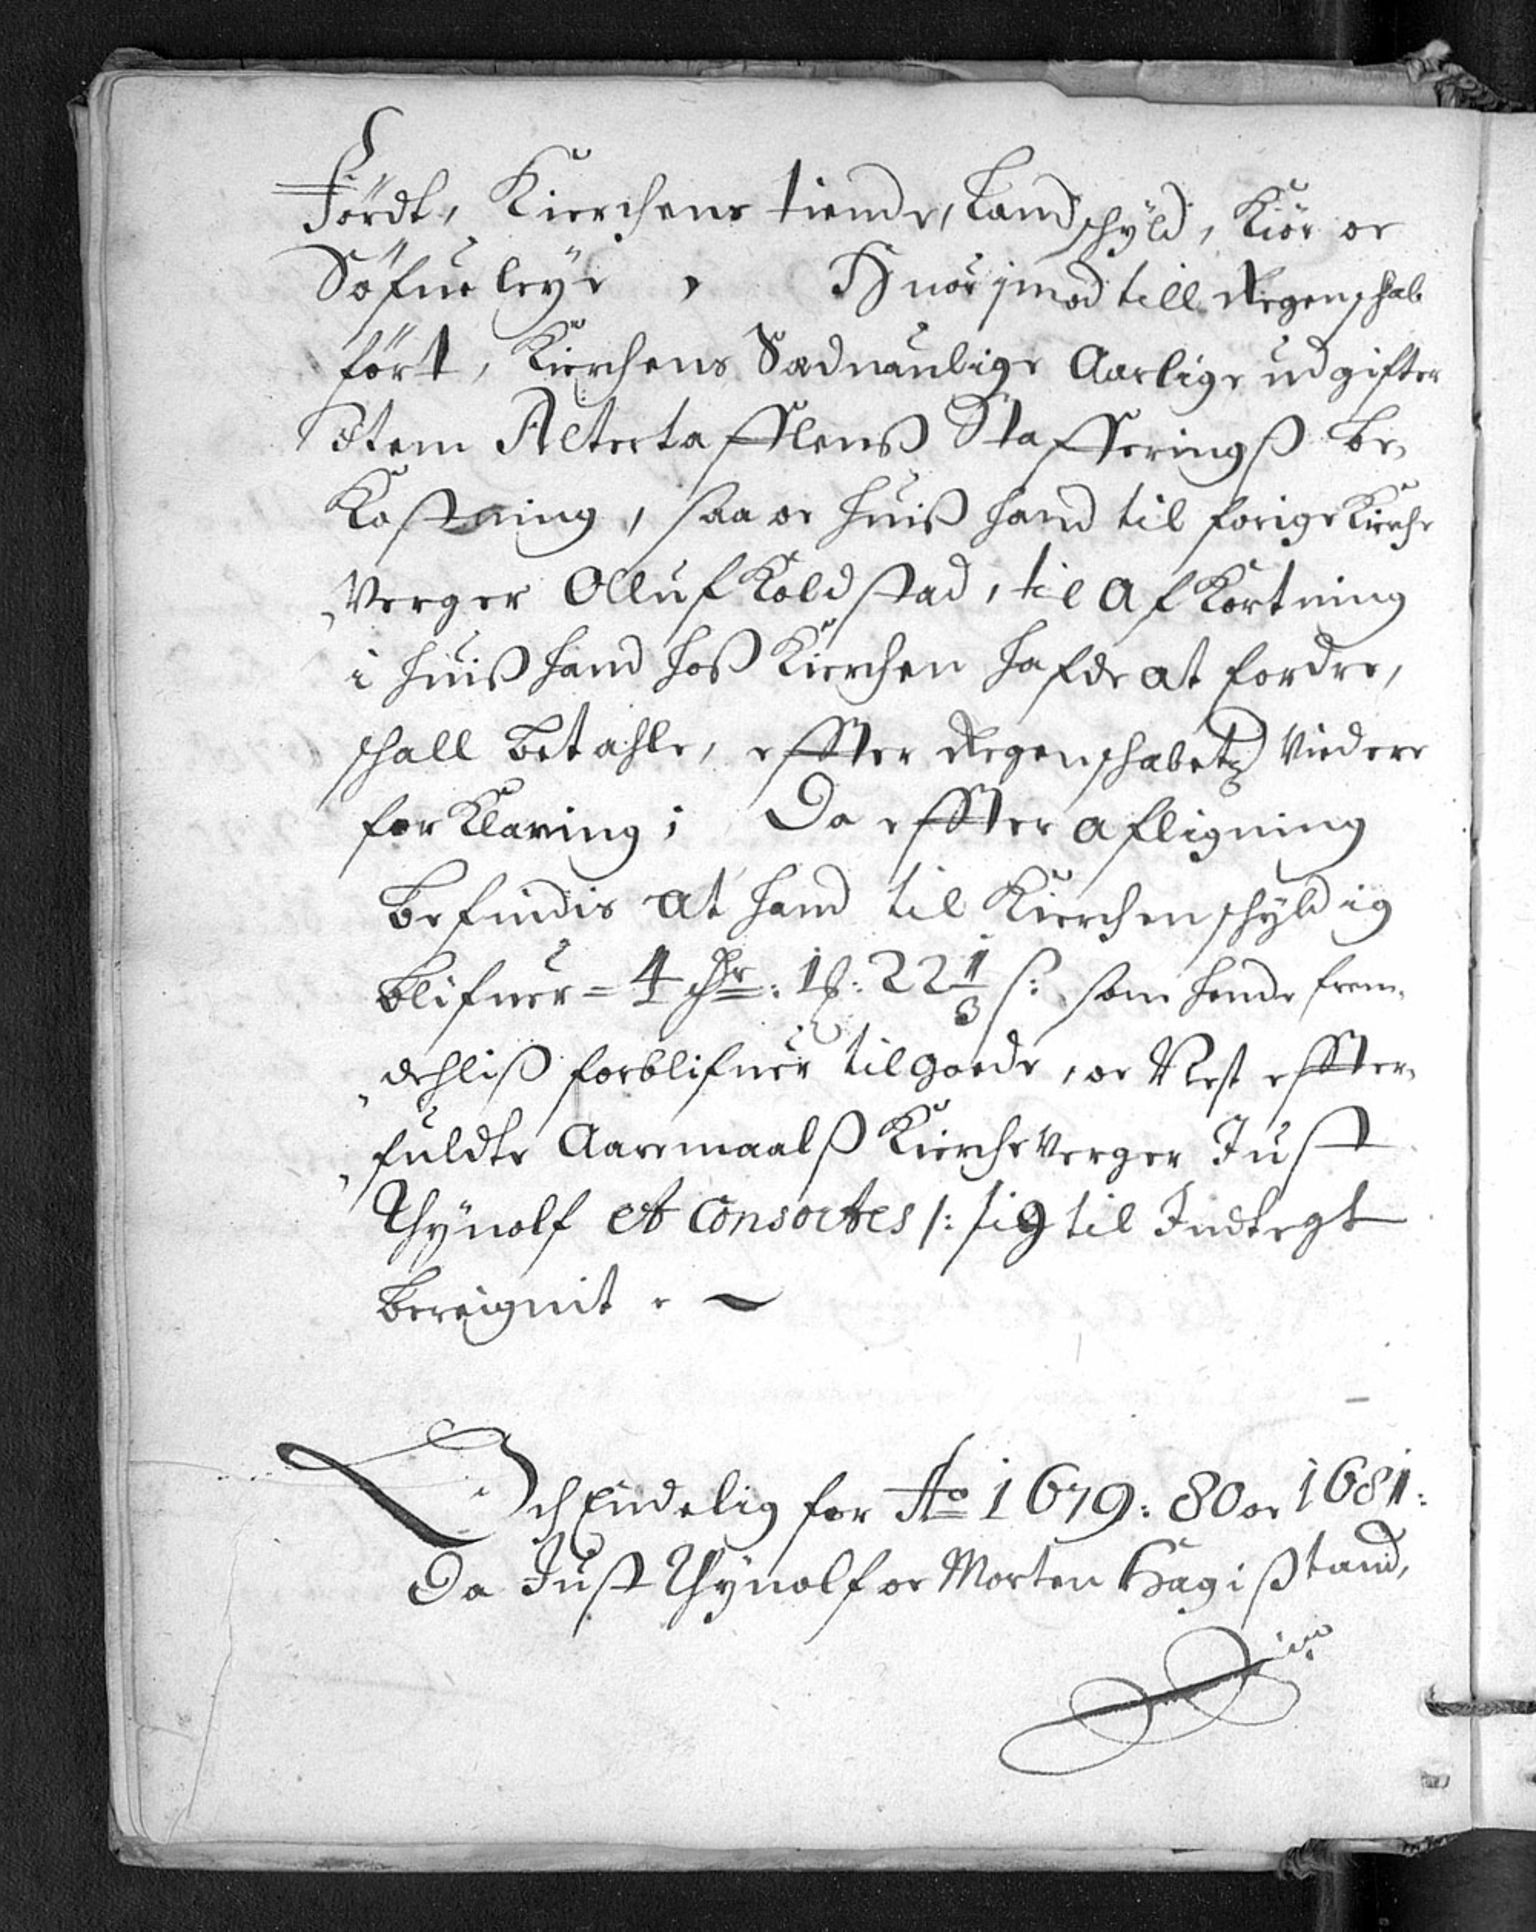 Fördt, Kierchens tiende, Landschÿld, Kiör oc
Söfueleÿe, Huorjmod till Regenschab
fört, Kierchens Sædvanlige Aarlige udgifter
Item Altertafflens Stafferings be-
Kostning, saa oc huiß hand til forige Kirche
Verger Olluf Koldstad, til Afkortning
i huiß hand hoß Kierchen hafde at fordre,
schall betahle, effter Regenschabetz Viedere
for Klaring; Da effter afligning
Befindis at hand til Kierchen schÿldig
blifuer = 4 dlr: 1 ℔: 22 1/3 s: som hende frem-
dehliß forblifuer tilgoede, oc Nest effter-
fuldte Aaremaalß Kircheverger Just
Thÿuolf et Consortes /: sig til Indtegt
bereignit.

Och Endelig for Ao 1679: 80 oc 1681:
Da Just Thÿuolf oc Morten Hagistand,